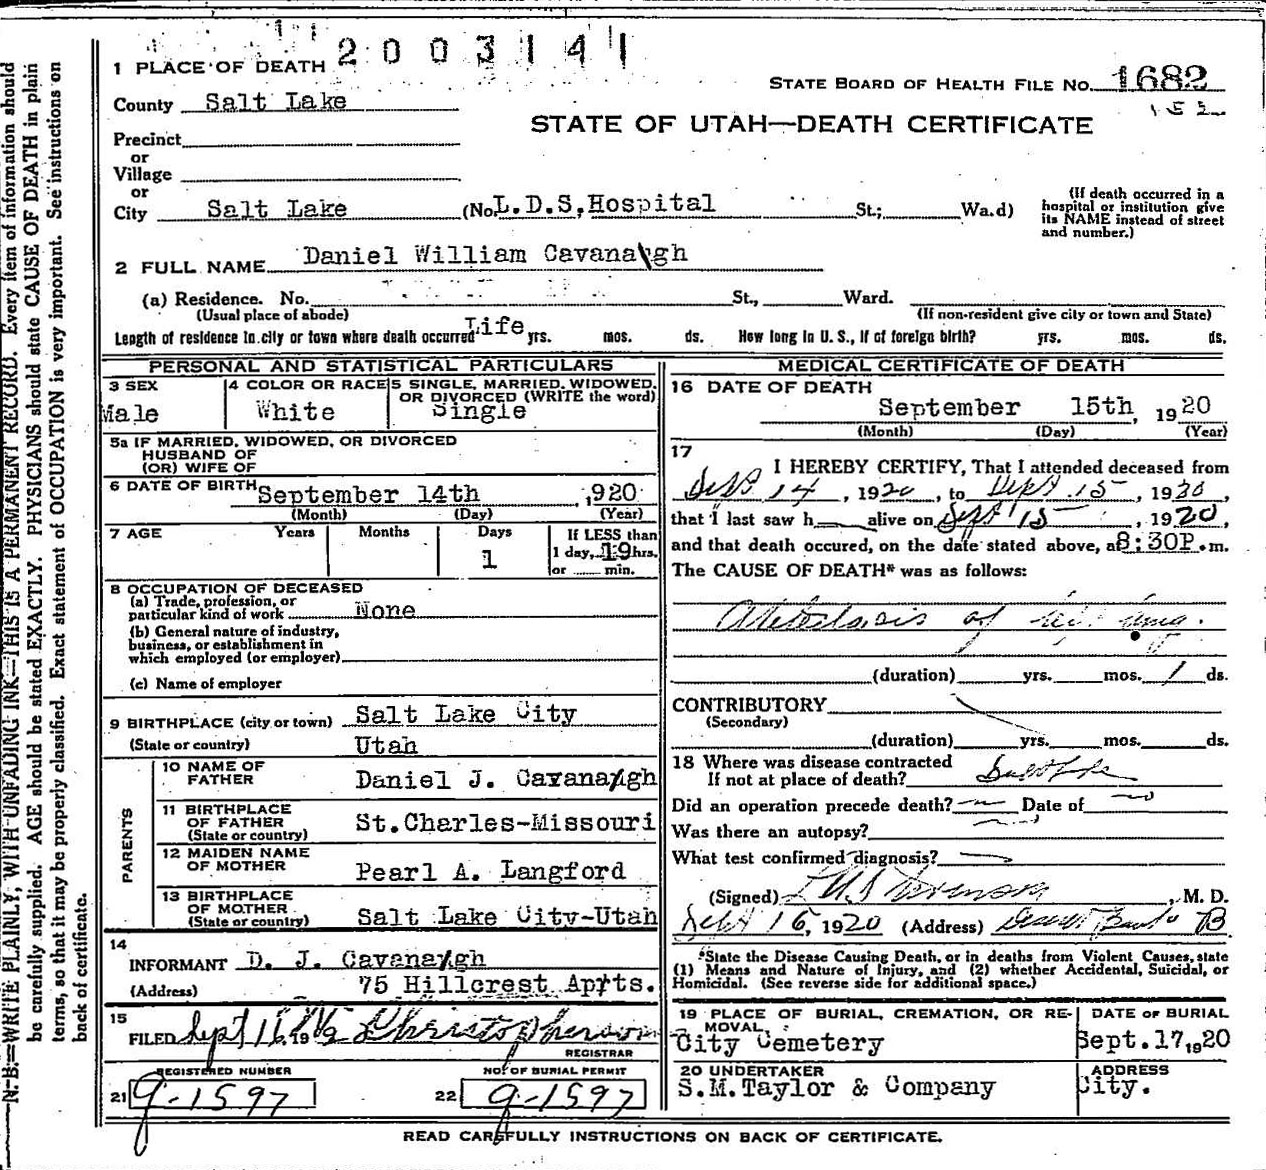 2003141
1 PLACE OF DEATH
STATE BOARD OF HEALTH FILE NO. 1682
County Salt Lake
STATE OF UTAH—DEATH CERTIFICATE
Precinct
or
Village
or
City Salt Lake (No. L.D.S. Hospital St.; Wa.d)
(If death occurred in a hospital or institution give its NAME instead of street and number.)
2 FULL NAME Daniel William Cavanaugh
(a) Residence. No. St., Ward.
(Usual place of abode) (If non-resident give city or town and State)
Length of residence in city or town where death occurred Life yrs. mos. ds. How long in U. S., if of foreign birth? yrs. mos. ds.
PERSONAL AND STATISTICAL PARTICULARS
3 SEX
Male
4 COLOR OR RACE
White
5 SINGLE, MARRIED, WIDOWED, OR DIVORCED (WRITE the word)
Single
5a IF MARRIED, WIDOWED, OR DIVORCED
HUSBAND OF
(OR) WIFE OF
6 DATE OF BIRTH September 14th, 920
(Month) (Day) (Year)
7 AGE Years Months Days
1
If LESS than
1 day, 19 hrs.
or min.
8 OCCUPATION OF DECEASED
(a) Trade, profession, or
particular kind of work None
(b) General nature of industry,
business, or establishment in
which employed (or employer)
(c) Name of employer
9 BIRTHPLACE (city or town) Salt Lake City
(State or country) Utah
PARENTS
10 NAME OF
FATHER Daniel J. Cavanaugh
11 BIRTHPLACE
OF FATHER
(State or country) St.Charles-Missouri
12 MAIDEN NAME
OF MOTHER Pearl A. Langford
13 BIRTHPLACE
OF MOTHER
(State or country) Salt Lake City-Utah
14
INFORMANT D. J. Cavanaugh
(Address) 75 Hillcrest Aprts.
15
FILED Sept 16, 19 Christopherson
REGISTRAR
REGISTERED NUMBER
21 9-1597
NO. OF BURIAL PERMIT
22 9-1597
MEDICAL CERTIFICATE OF DEATH
16 DATE OF DEATH
September 15th, 1920
(Month) (Day) (Year)
17
I HEREBY CERTIFY, That I attended deceased from
Sept 14, 1920, to Sept 15, 1920,
that I last saw h alive on Sept 15, 1920,
and that death occured, on the date stated above, a 8:30P.m.
The CAUSE OF DEATH* was as follows:
Atelectasis of lung.
(duration) yrs. mos. 1 ds.
CONTRIBUTORY
(Secondary)
(duration) yrs. mos. ds.
18 Where was disease contracted
If not at place of death?
Did an operation precede death? Date of
Was there an autopsy?
What test confirmed diagnosis?
(Signed), M. D.
Sept 16, 1920 (Address) Deseret Bank B
*State the Disease Causing Death, or in deaths from Violent Causes, state
(1) Means and Nature of Injury, and (2) whether Accidental, Suicidal, or
Homicidal. (See reverse side for additional space.)
19 PLACE OF BURIAL, CREMATION, OR RE-
MOVAL,
City Cemetery
DATE OF BURIAL
Sept.17, 1920
20 UNDERTAKER
S.M.Taylor & Company
ADDRESS
City.
READ CAREFULLY INSTRUCTIONS ON BACK OF CERTIFICATE.
N. B.—WRITE PLAINLY, WITH UNFADING INK—THIS IS A PERMANENT RECORD. Every item of information should
be carefully supplied. AGE should be stated EXACTLY. PHYSICIANS should state CAUSE OF DEATH in plain
terms, so that it may be properly classified. Exact statement of OCCUPATION is very important. See instructions on
back of certificate.